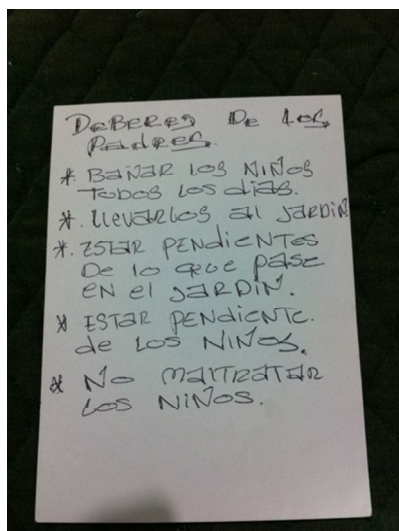 DEBERES DE LOS
PADRES.
* BAÑAR LOS NIÑOS
TODOS LOS dias.
* llevarlos al JARDIN
* ESTAR PENDIENTES
DE lo QUE PASE
EN el JARDIN.
* ESTAR PENDIENTE.
de LOS NIÑOS.
* NO MALTRATAR
LOS NIÑOS.